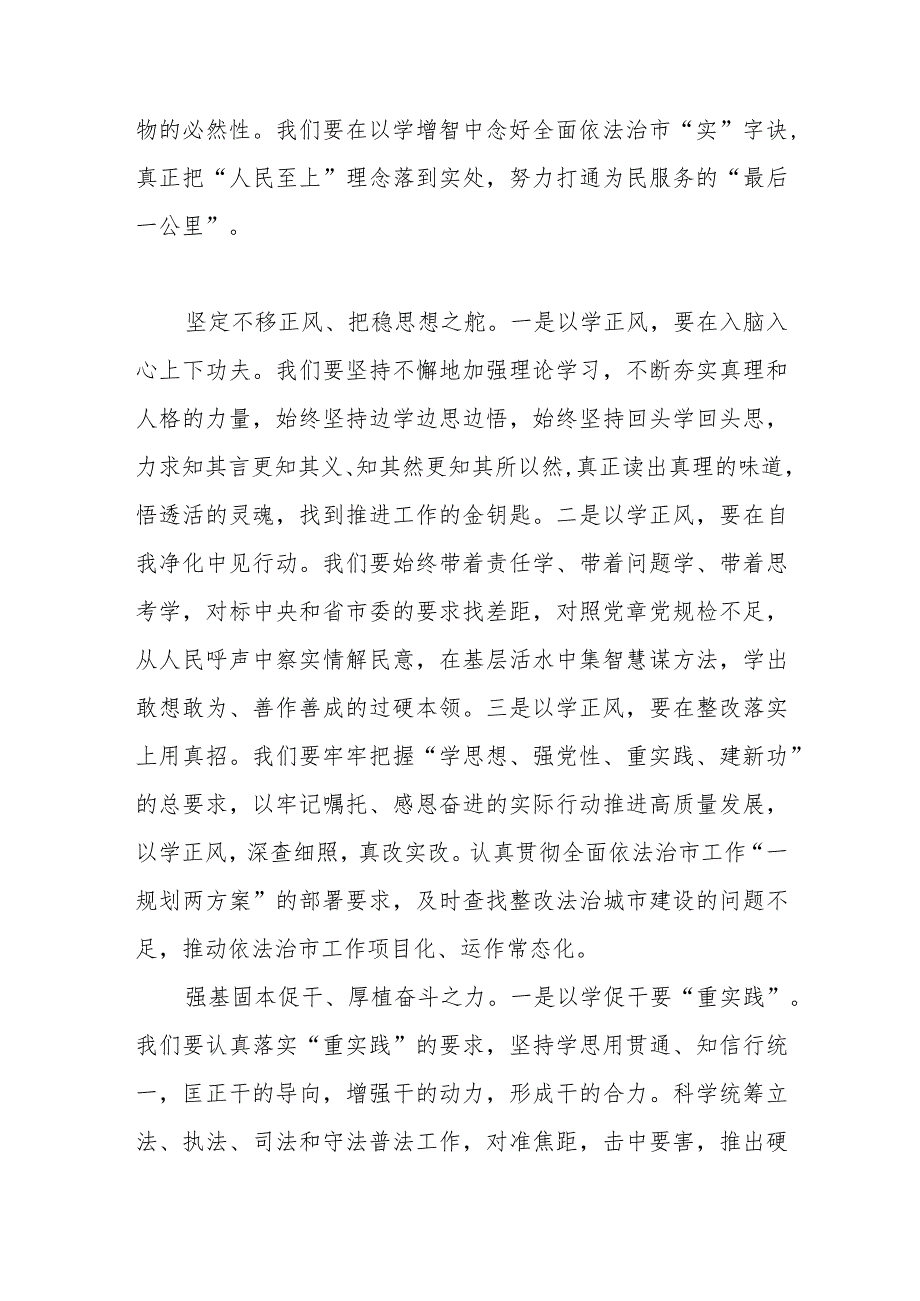 物的必然性。我们要在以学增智中念好全面依法治市“实”字诀,
真正把“人民至上”理念落到实处，努力打通为民服务的“最后
一公里”。
坚定不移正风、把稳思想之舵。一是以学正风，要在入脑入
心上下功夫。我们要坚持不懈地加强理论学习，不断夯实真理和
人格的力量，始终坚持边学边思边悟，始终坚持回头学回头思，
力求知其言更知其义、知其然更知其所以然,真正读出真理的味道，
悟透活的灵魂，找到推进工作的金钥匙。二是以学正风，要在自
我净化中见行动。我们要始终带着责任学、带着问题学、带着思
考学，对标中央和省市委的要求找差距，对照党章党规检不足，
从人民呼声中察实情解民意，在基层活水中集智慧谋方法，学出
敢想敢为、善作善成的过硬本领。三是以学正风，要在整改落实
上用真招。我们要牢牢把握“学思想、强党性、重实践、建新功”
的总要求，以牢记嘱托、感恩奋进的实际行动推进高质量发展，
以学正风，深查细照，真改实改。认真贯彻全面依法治市工作“一
规划两方案”的部署要求，及时查找整改法治城市建设的问题不
足，推动依法治市工作项目化、运作常态化。
强基固本促干、厚植奋斗之力。一是以学促干要“重实践”。
我们要认真落实“重实践”的要求，坚持学思用贯通、知信行统
一，匡正干的导向，增强干的动力，形成干的合力。科学统筹立
法、执法、司法和守法普法工作，对准焦距，击中要害，推出硬